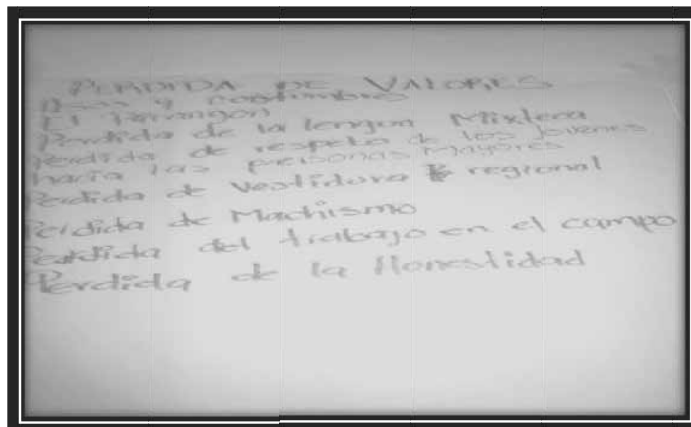 PERDIDA DE VALORES
Usos y costumbre
El
Perdida de la lengua Mixteca
Perdida de respeto de los jovenes
hacia las personas Mayores
Perdida de Vestidura regional
Perdida de Machismo
Perdida del trabajo en el campo
Perdida de la Honestidad